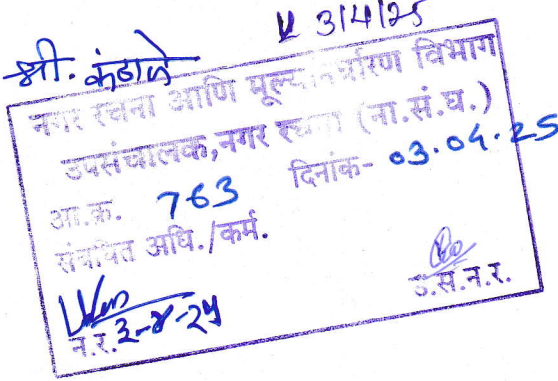 3/4/25
श्री. कंडाळे
नगर रचना आणि मूल्यनिर्धारण विभाग
उपसंचालक, नगर रचना (ना.सं.घ.)
आ.क्र. 763 दिनांक- 03.04.25
संबंधित अधि./कर्म.
उ.सं.न.र.
न.र. 3-४-25